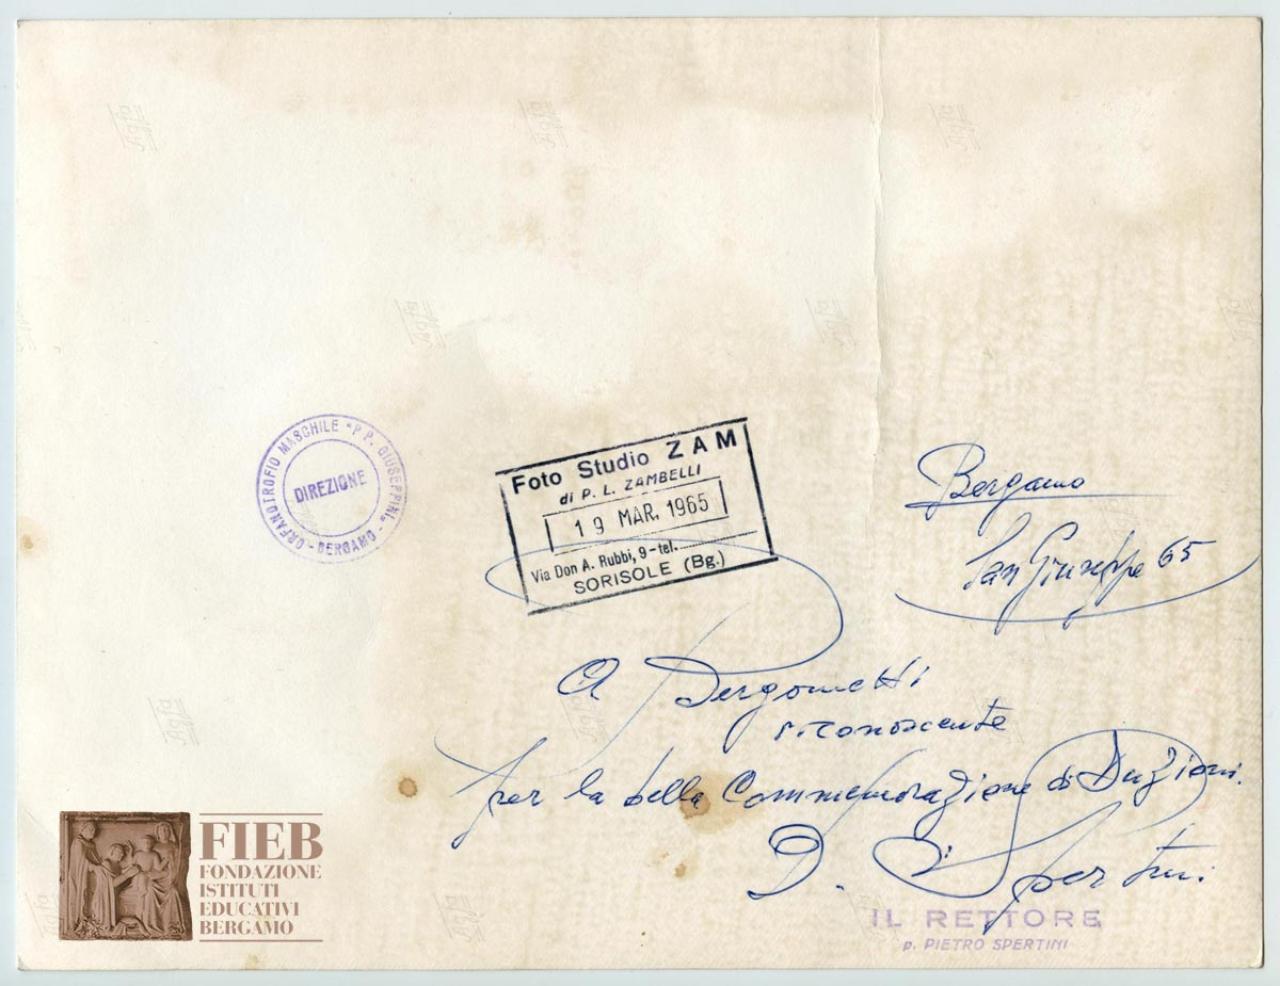 ORFANOTROFIO MASCHILE "P.P. GIUSEPPINI" - BERGAMO -
DIREZIONE
Foto Studio ZAM
di P. L. ZAMBELLI
19 MAR. 1965
Via Don A. Rubbi, 9 - tel.
SORISOLE (Bg.)
Bergamo
San Giuseppe 65
A Bergometti
riconoscente
per la bella Commemorazione di
D. P. Spertini
IL RETTORE
p. PIETRO SPERTINI
FIEB
FONDAZIONE
ISTITUTI
EDUCATIVI
BERGAMO